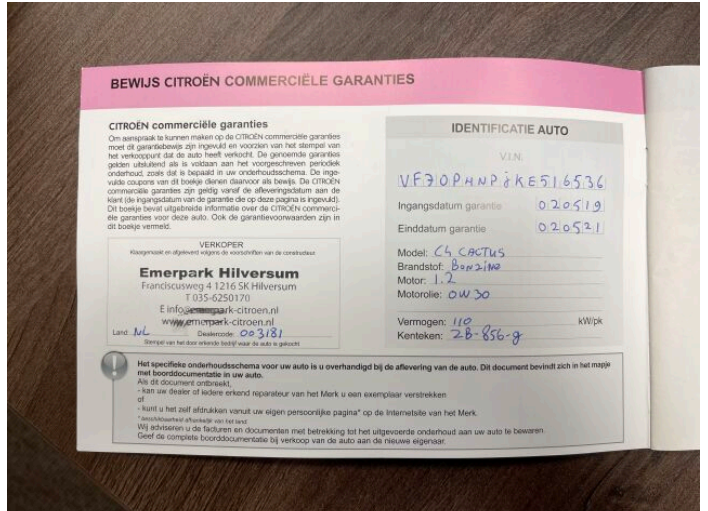 BEWIJS CITROËN COMMERCIËLE GARANTIES
CITROËN commerciële garanties
Om aanspraak te kunnen maken op de CITROËN commerciële garanties
moet dit garantiebewijs zijn ingevuld en voorzien van het stempel van
het verkooppunt dat de auto heeft verkocht. De genoemde garanties
gelden uitsluitend als is voldaan aan het voorgeschreven periodiek
onderhoud, zoals dat is bepaald in uw onderhoudsschema. De inge-
vulde coupons van dit boekje dienen daarvoor als bewijs. De CITROËN
commerciële garanties zijn geldig vanaf de afleveringsdatum aan de
klant (de ingangsdatum van de garantie die op deze pagina is ingevuld).
Dit boekje bevat uitgebreide informatie over de CITROËN commerci-
ële garanties voor deze auto. Ook de garantievoorwaarden zijn in
dit boekje vermeld.
VERKOPER
Klaargemaakt en afgeleverd volgens de voorschriften van de constructeur
Emerpark Hilversum
Franciscusweg 4 1216 SK Hilversum
T 035-6250170
E info@emerpark-citroen.nl
www.emerpark-citroen.nl
Land: NL Dealercode: 003181
Stempel van het door erkende bedrijf waar de auto is gekocht
IDENTIFICATIE AUTO
V.I.N.
VF70PHNPjKE516536
Ingangsdatum garantie 020519
Einddatum garantie 020521
Model: C4 CACTUS
Brandstof: Benzine
Motor: 1.2
Motorolie: 0W30
Vermogen: 110 kW/pk
Kenteken: ZB-856-g
Het specifieke onderhoudsschema voor uw auto is u overhandigd bij de aflevering van de auto. Dit document bevindt zich in het mapje
met boorddocumentatie in uw auto.
Als dit document ontbreekt,
- kan uw dealer of iedere erkend reparateur van het Merk u een exemplaar verstrekken
of
- kunt u het zelf afdrukken vanuit uw eigen persoonlijke pagina* op de Internetsite van het Merk.
* beschikbaarheid afhankelijk van het land
Wij adviseren u de facturen en documenten met betrekking tot het uitgevoerde onderhoud aan uw auto te bewaren.
Geef de complete boorddocumentatie bij verkoop van de auto aan de nieuwe eigenaar.